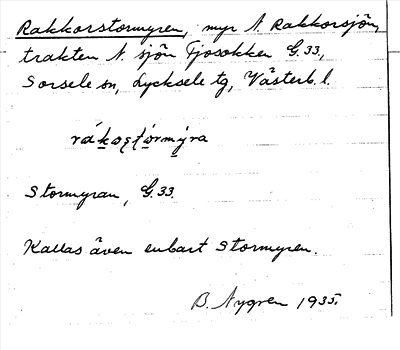 Rakkorstormyren, myr N. Rakkorsjön,
trakten N. sjön Fjosokken G.33.,
Sorsele sn, Lycksele tg, Västerb. l.
Stormyran, G.33.
Kallas även enbart Stormyren.
B. Nygren 1935.